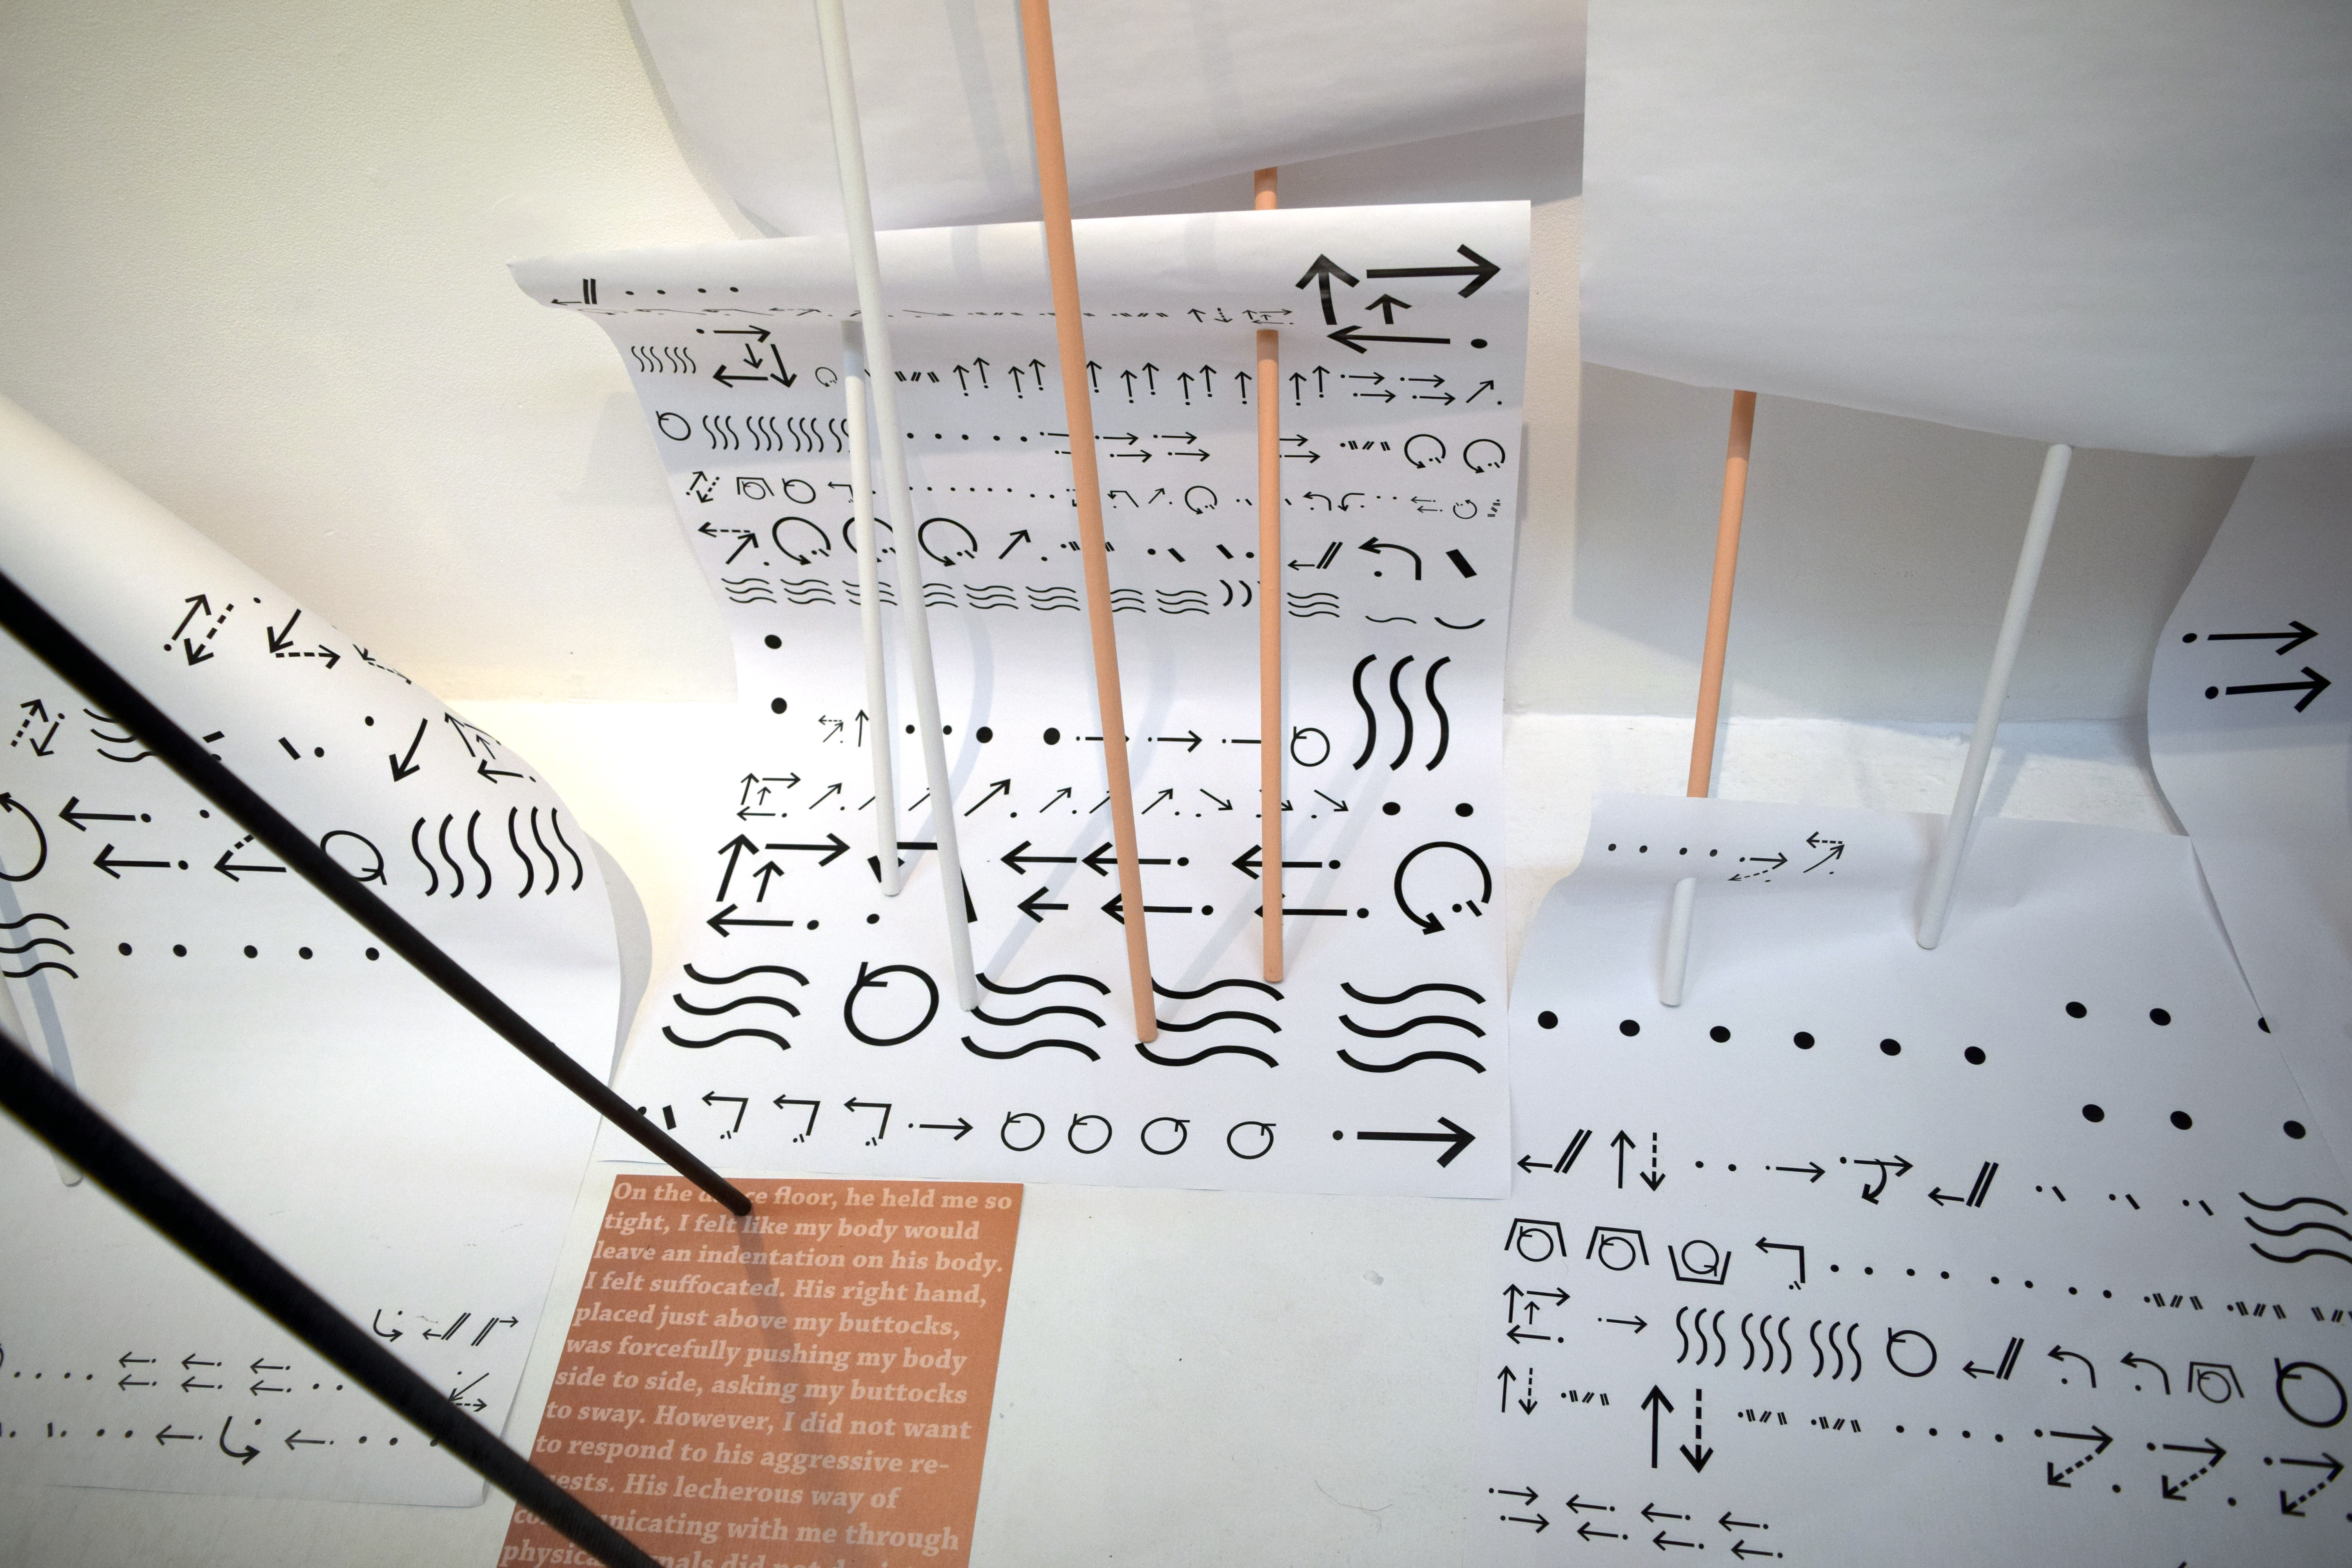 On the dance floor, he held me so
tight, I felt like my body would
leave an indentation on his body.
I felt suffocated. His right hand,
placed just above my buttocks,
was forcefully pushing my body
side to side, asking my buttocks
to sway. However, I did not want
to respond to his aggressive re-
quests. His lecherous way of
communicating with me through
physical signals did not